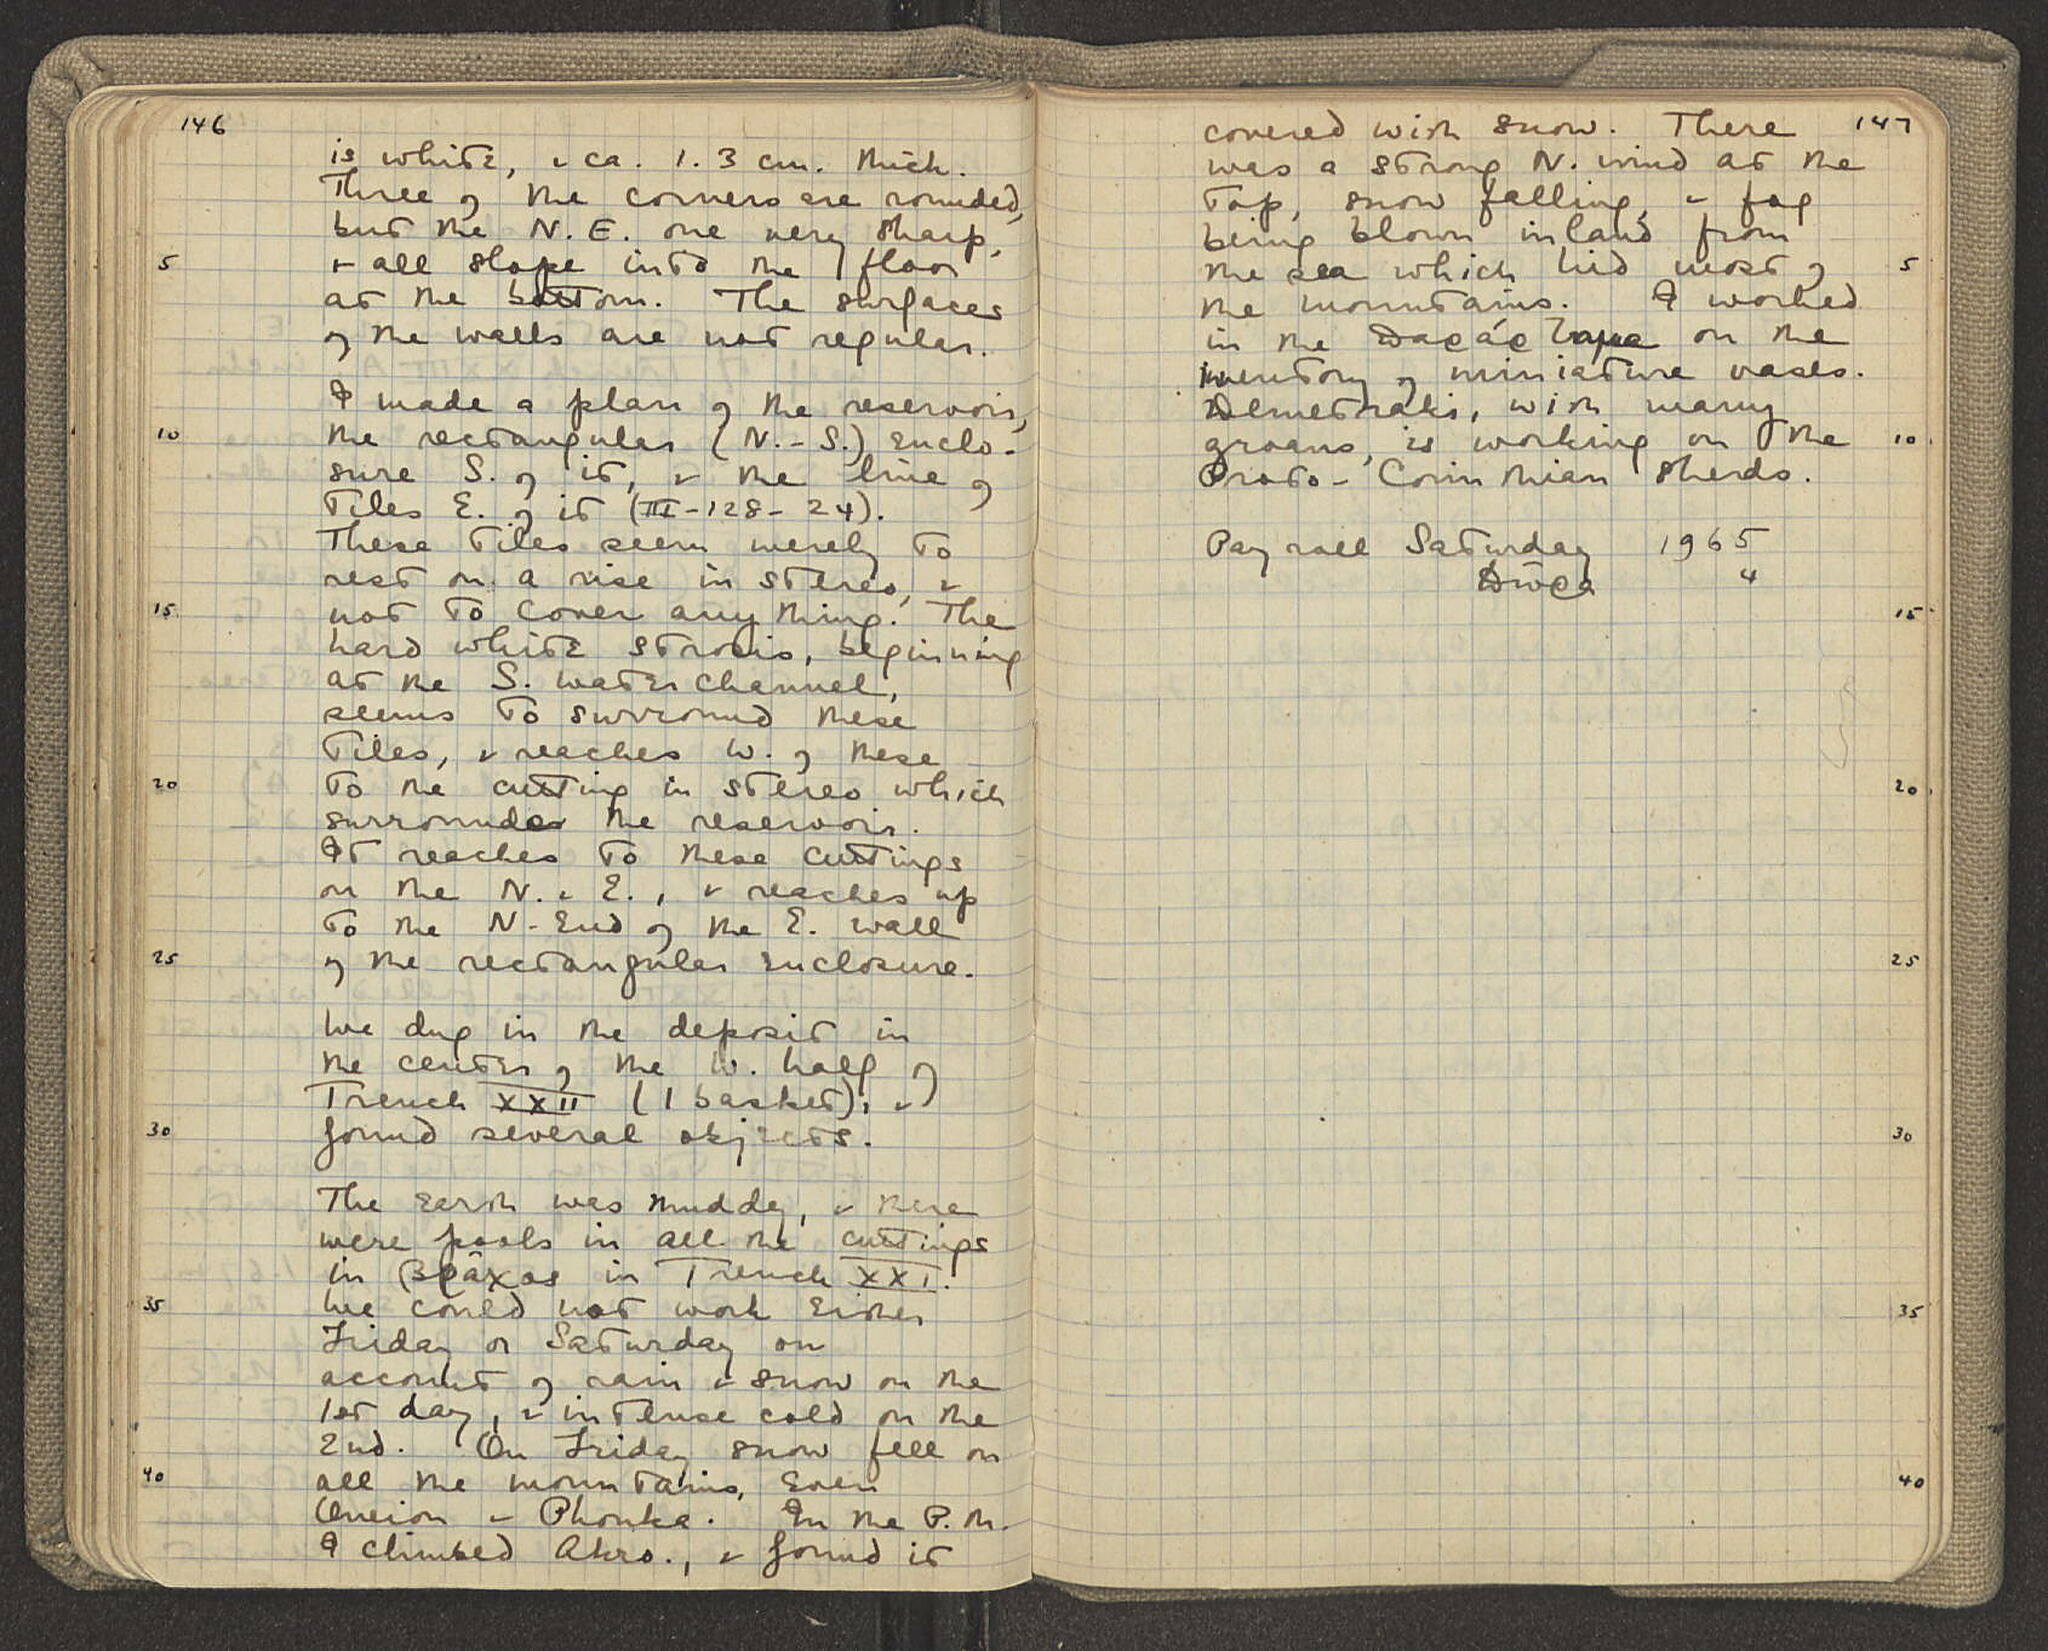 146
is white, & ca. 1.3 cm. thick.
Three of the corners are rounded,
but the N.E. one very sharp,
5 & all slope into the floor
at the bottom. The surfaces
of the walls are not regular.
I made a plan of the reservoir,
10 the rectangular (N.-S.) enclo-
sure S. of it, & the line of
tiles E. of it (III-128-24).
These tiles seem merely to
rest on a rise in stereo, &
15 not to cover anything. The
hard white strosis, beginning
at the S. water channel,
seems to surround these
tiles, & reaches W. of these
20 to the cutting in stereo which
surrounds the reservoir.
It reaches to these cuttings
on the N. & E., & reaches up
to the N-End of the E. wall
25 of the rectangular enclosure.
We dug in the deposit in
the center of the W. half of
Trench XXII (1 basket), &
30 found several objects.
The earth was muddy, & there
were pools in all the cuttings
in βράχος in Trench XXI.
35 We could not work either
Friday or Saturday on
account of rain & snow on the
1st day, & intense cold on the
2nd. On Friday snow fell on
40 all the mountains, even
Oneion & Phouka. In the P.M.
I climbed Akro., & found it
147
covered with snow. There
was a strong N. wind at the
top, snow falling, & fog
being blown inland from
the sea which hid most of 5
the mountains. I worked
in the on the
inventory of miniature vases.
Demetrakis, with many
groans, is working on the 10
Proto-Corinthian sherds.
Pay roll Saturday 1965
Δώρα "
15
20
25
30
35
40